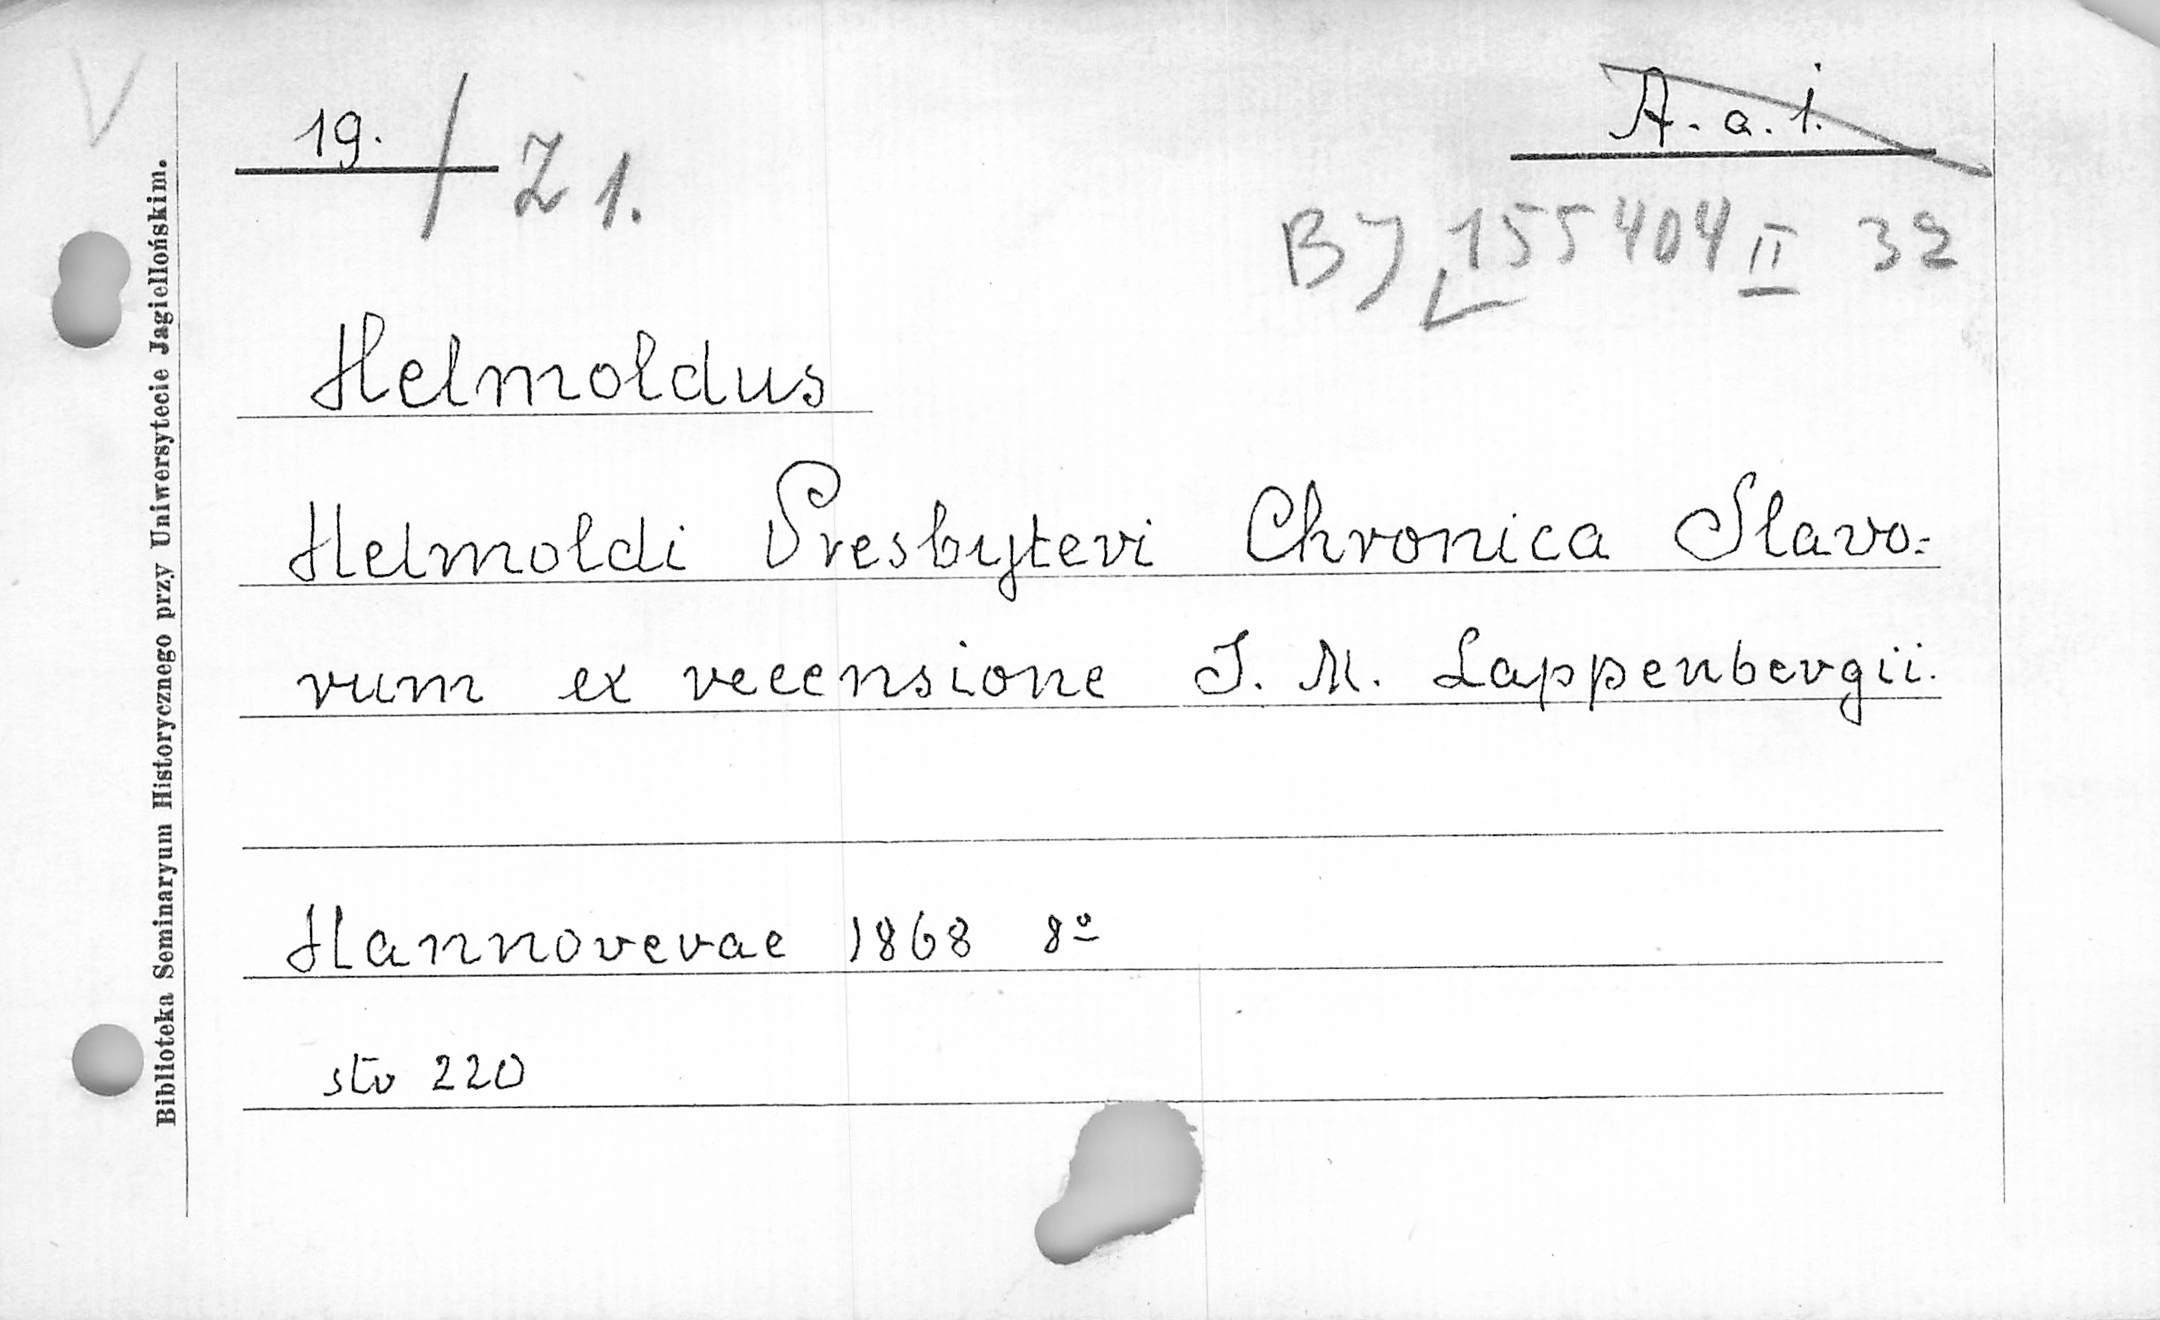 V
19. / Z 1.
A. a. 1.
BJ 155404 II 32
Helmoldus
Helmoldi Presbyteri Chronica Slavo-
rum ex recensione J. M. Lappenbergii.
Hannoverae 1868 8º
str 220
Biblioteka Seminaryum Historycznego przy Uniwersytecie Jagiellońskim.